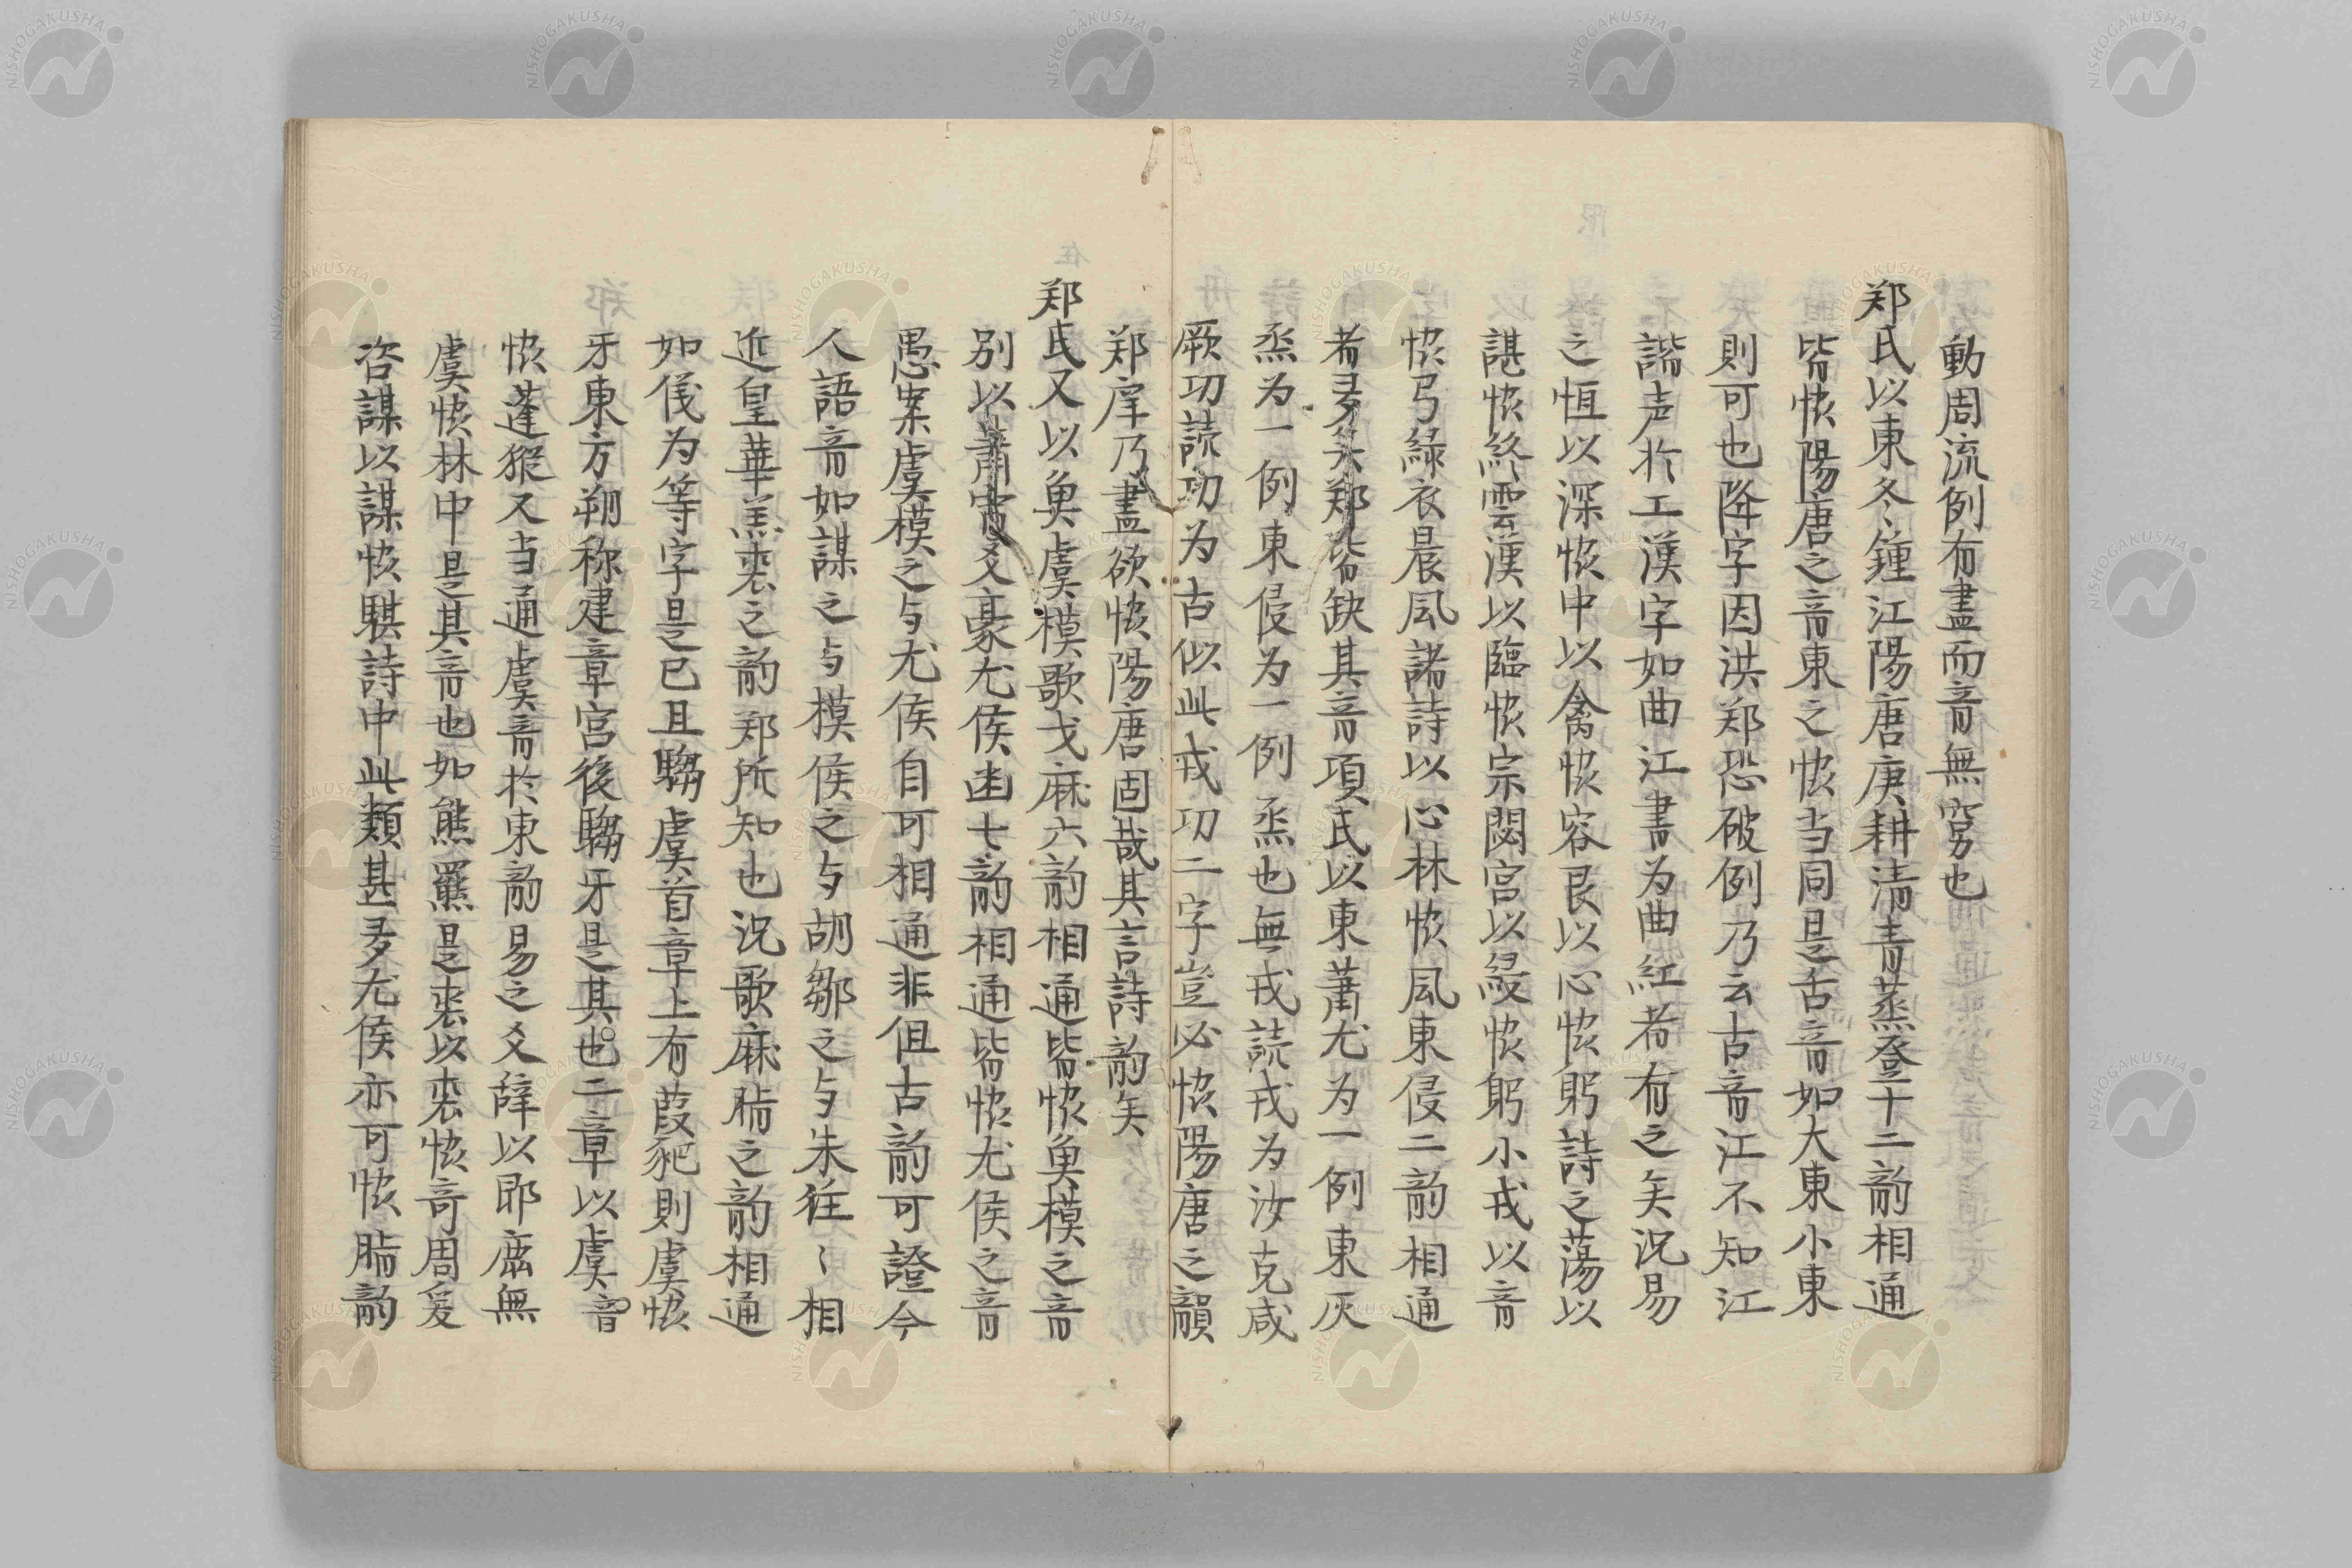 動周流例有盡而音無窮也
郑氏以東冬鍾江陽唐庚耕清青蒸登十二韵相通
皆恊陽唐之音東之恊当同是舌音如大東小東
則可也降字因洪郑恐破例乃云古音江不知江
諧声於工漢字如曲江書为曲紅者有之矣況易
之恒以深恊中以禽恊容艮以心恊躬詩之蕩以
諶恊終雲漢以臨恊宗閟宮以綅恊躬小戎以音
恊弓緑衣晨風諸詩以心林恊風東侵二韵相通
者多矣郑皆缺其音項氏以東蕭尤为一例東灰
烝为一例東侵为一例烝也無戎読戎为汝克咸
厥功読功为古似此戎功二字豈必恊陽唐之韻
郑庠乃盡欲恊陽唐固哉其言詩韵矣
郑氏又以魚虞模歌戈麻六韵相通皆恊魚模之音
別以蕭宵爻豪尤侯幽七韵相通皆恊尤侯之音
愚案虞模之与尤侯自可相通非但古韵可證今
人語音如謀之与模侯之与胡鄒之与朱往〻相
近皇華羔裘之韵郑所知也況歌麻脂之韵相通
如儀为等字是已且騶虞首章上有葭豝則虞恊
牙東方朔称建章宮後騶牙是其也二章以虞音
恊蓬豵又当通虞音於東韵易之爻辞以即鹿無
虞恊林中是其音也如熊羆是裘以裘恊奇周爰
咨謀以謀恊騏詩中此類甚多尤侯亦可恊脂韵